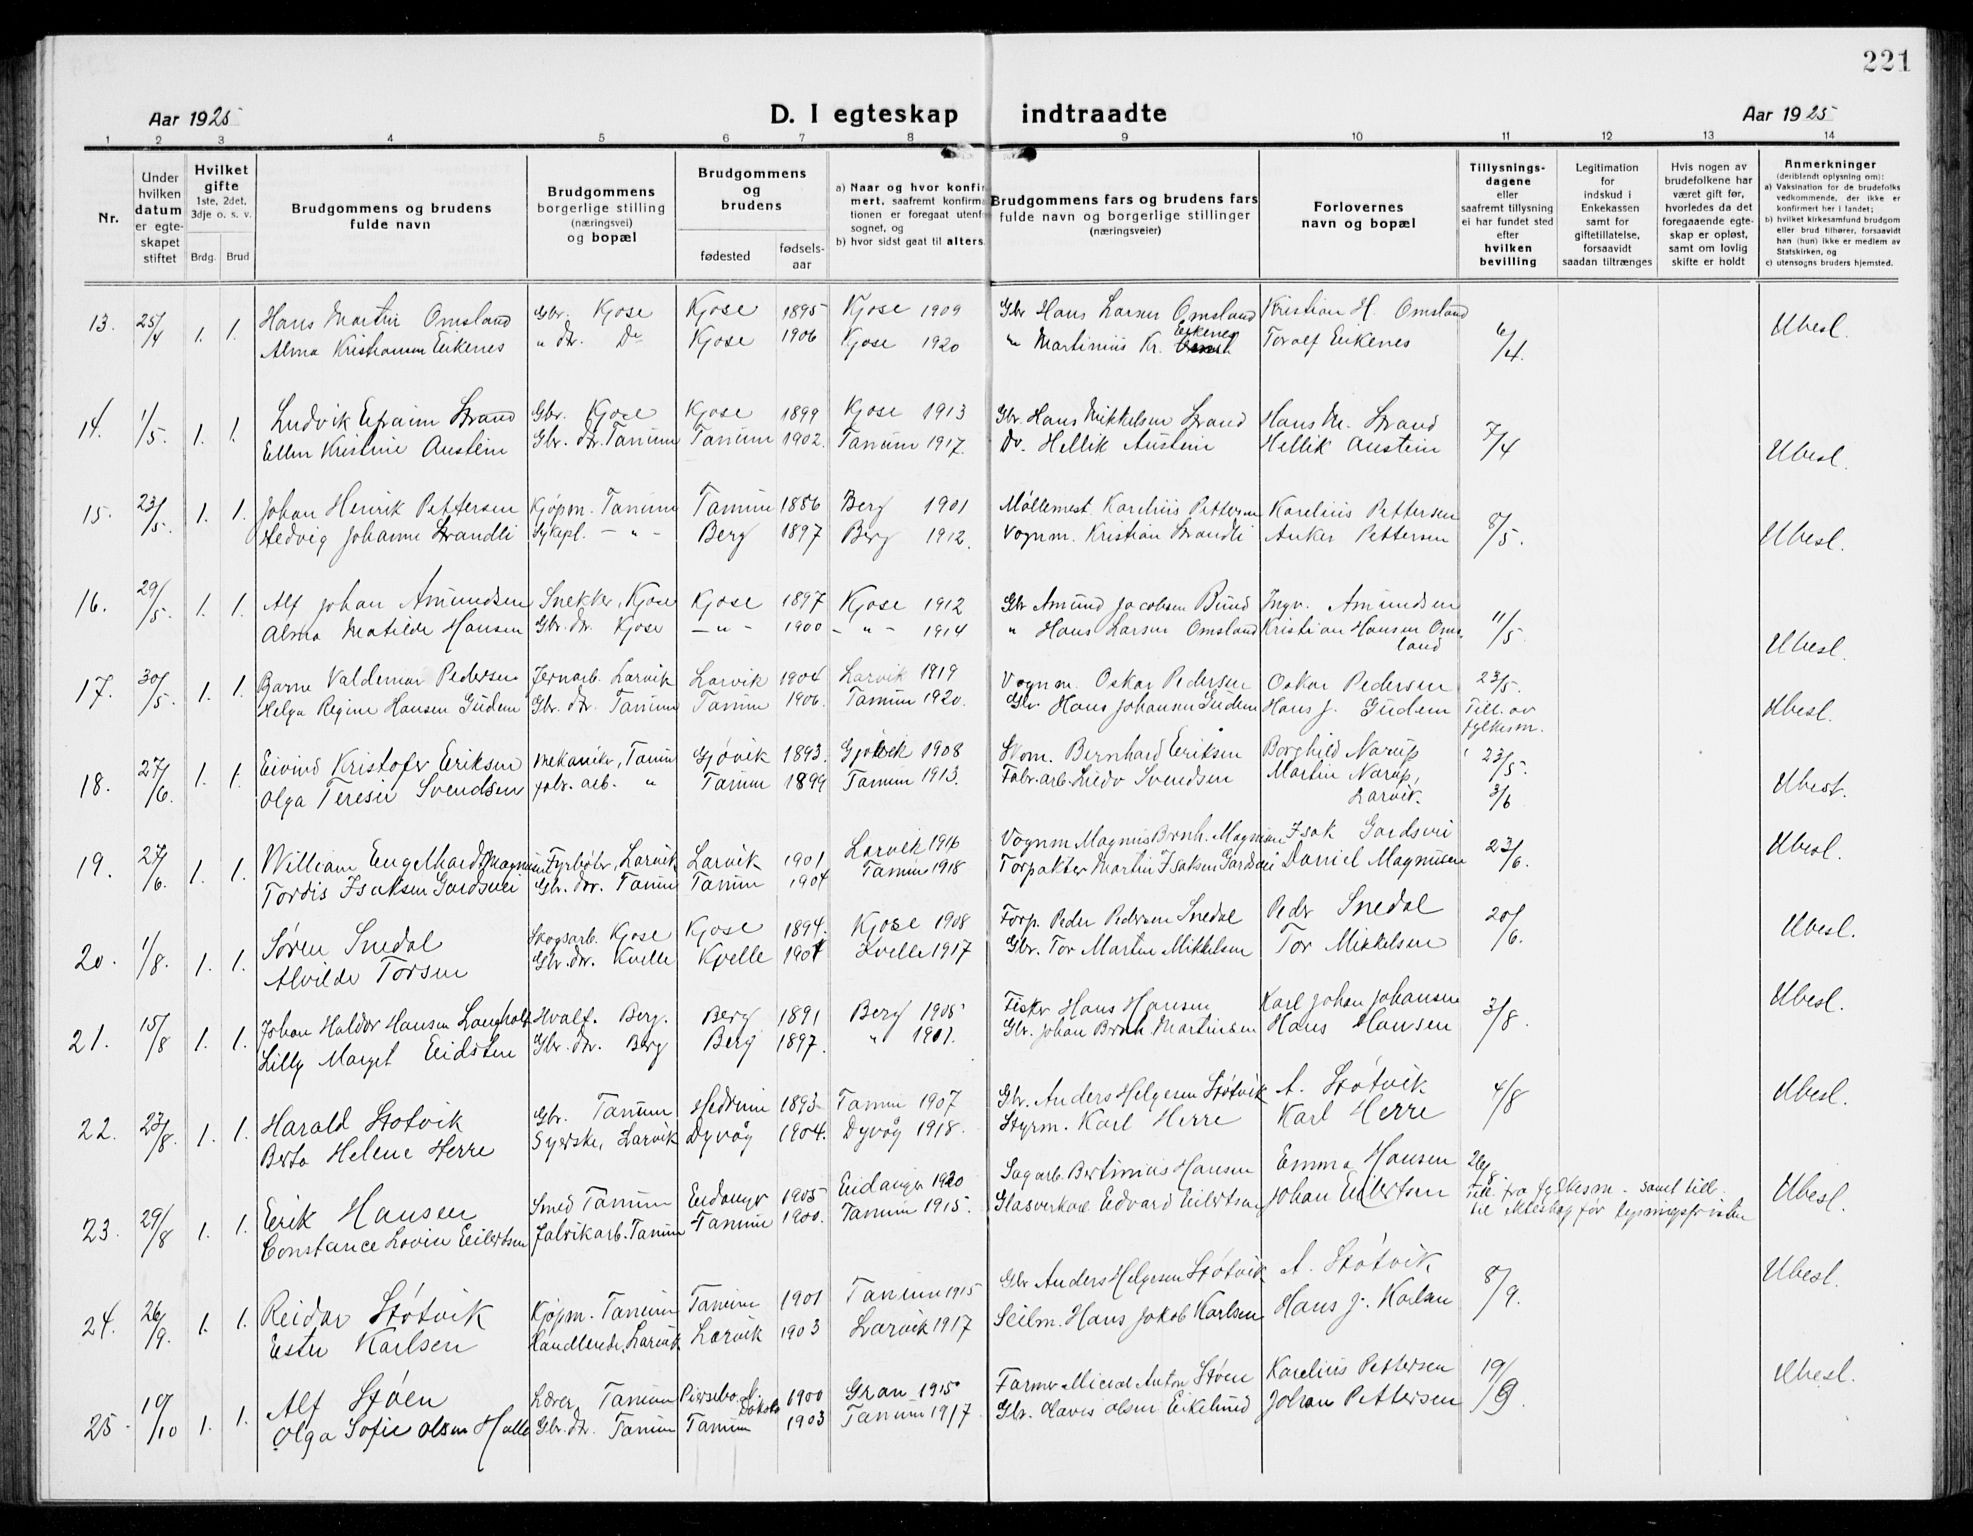 221
Aar 1925 D. I egteskap indtraadte Aar 1925
1 2 3 4 5 6 7 8 9 10 11 12 13 14
Nr.
Under hvilken datum er egteskapet stiftet
Hvilket gifte 1ste, 2det, 3dje o. s. v.
Brdg. Brud
Brudgommens og brudens fulde navn
Brudgommens borgerlige stilling (næringsvei) og bopæl
Brudgommens og brudens
fødested fødselsaar
a) Naar og hvor konfirmert, saafremt konfirmationen er foregaat utenfor sognet, og
b) hvor sidst gaat til alters.
Brudgommens fars og brudens fars fulde navn og borgerlige stillinger (næringsveier)
Forlovernes navn og bopæl
Tillysningsdagene eller saafremt tillysning ei har fundet sted efter hvilken bevilling
Legitimation for indskud i Enkekassen samt for giftetillatelse, forsaavidt saadan tiltrænges
Hvis nogen av brudefolkene har været gift før, hvorledes da det foregaaende egteskap er opløst, samt om lovlig skifte er holdt
Anmerkninger (deriblendt oplysning om):
a) Vaksination for de brudefolks vedkommende, der ikke er konfirmert her i landet;
b) hvilket kirkesamfund brudgom eller brud tilhører, forsaavidt han (hun) ikke er medlem av Statskirken, og
c) utensogns bruders hjemsted.
13. 25/4 1. 1. Hans Martin Omsland Gbr. Kjose Kjose 1895 Kjose 1909 Gbr Hans Larsen Omsland Kristian H. Omsland 6/4. Ubesl.
Alma Kristiansen Eikenes " dtr. Do Kjose 1906 Kjose 1920 " Martinius Kr. Eikenes Toralf Eikenes
14. 1/5. 1. 1. Ludvik Efraim Strand Gbr. Kjose Kjose 1899 Kjose 1913 Gbr. Hans Mikkelsen Strand Hans M. Strand 7/4 Ubesl.
Ellen Kristine Austein Gbr. dtr. Tanum Tanum 1902. Tanum 1917. Do. Hellik Austein Hellik Austein
15. 23/5. 1. 1. Johan Henrik Pettersen Kjøpm. Tanum Tanum 1886 Berg 1901 Møllemest. Karelius Pettersen Karelius Pettersen 8/5. Ubesl.
Hedvig Johanne Strandli Sykepl. - " - Berg 1897 Berg 1912. Vognm. Kristian Strandli Anker Pettersen
16. 29/5. 1. 1. Alf Johan Amundsen Snekker, Kjose Kjose 1897 Kjose 1912 Gbr Amund Jacobsen Bund Ingv. Amundsen 11/5. Ubesl.
Alma Matilde Hansen Gbr. dtr. Kjose - " - 1900 - " - 1914 " Hans Larsen Omsland Kristian Hansen Omsland
17. 30/5. 1. 1. Barne Valdemar Pedersen Jernarb. Larvik Larvik 1904 Larvik 1919 Vognm. Oskar Pedersen Oskar Pedersen 23/5. Ubesl.
Helga Regine Hansen Gudem Gbr. dtr. Tanum Tanum 1906. Tanum 1920. Gbr Hans Johansen Gudem Hans J. Gudem Till. av fylkesm.
18. 27/6. 1. 1. Eivind Kristofer Eriksen Mekaniker, Tanum Gjøvik 1893. Gjøvik 1908 Skom. Bernhard Eriksen Borghild Narup 23/5. Ubesl.
Olga Terese Svendsen fabr. arb. " Tanum 1899 Tanum 1913. Fabr. arb. Ludv Svendsen Martin Narup, Larvik. 3/6
19. 27/6. 1. 1. William Engelhardt Magnusen Fyrbøter, Larvik Larvik 1901 Larvik 1916 Vognm Magnus Brnh. Magnusen Isak Gardsvei 23/6. Ubesl.
Tordis Isaksen Gardsvei Gbr. dtr. Tanum Tanum 1904 Tanum 1918 Torpakter Martin Isaksen Gardsvei Daniel Magnusen
20. 1/8. 1. 1. Søren Snedal Skogsarb. Kjose Kjose 1894. Kjose 1908 Forp. Peder Pedersen Snedal Peder Snedal 20/6. Ubesl.
Alvilde Torsen Gbr. dtr. Kvelle Kvelle 1901 Kvelle 1917 Gbr. Tor Martin Mikkelsen Tor Mikkelsen
21. 15/8 1. 1. Johan Haldor Hansen Langholt Hvalf. Berg. Berg 1891 Berg 1905 Fisker Hans Hansen Karl Johan Johansen 3/8. Ubesl.
Lilly Marget Eidsten Gbr. dtr. Berg Berg 1897. " 1901. Gbr. Johan Brnh. Martinsen Hans Hansen
22. 23/8. 1. 1. Harald Støtvik Gbr. Tanum Hedrum 1893 Tanum 1907 Gbr. Anders Helgesen Støtvik A. Støtvik 4/8 Ubesl.
Berta Helene Herre Syerske, Larvik Dyvåg 1904. Dyvåg 1918. Styrm. Karl Herre Karl Herre
23. 29/8 1. 1. Eirik Hansen Smed Tanum Eidanger 1905 Eidanger 1920 Sagarb. Bertinius Hansen Emma Hansen 26/8 Ubesl.
Constance Lovise Eilertsen Fabrikarb. Tanum Tanum 1900. Tanum 1915. Glasverkarb Edvard Eilertsen Johan Eilertsen Till. fra fylkesm. samt till. til ekteskap før lysningsfristen
24. 26/9. 1. 1. Reidar Støtvik Kjøpm. Tanum Tanum 1901 Tanum 1915 Gbr Anders Helgesen Støtvik A. Støtvik 8/9. Ubesl.
Ester Karlsen Handlende, Larvik Larvik 1903 Larvik 1917 Seilm. Hans Jakob Karlsen Hans J. Karlsen
25. 10/10 1. 1. Alf Støen Lærer Tanum Dakota 1900 Gran 1915 Farmer Anton Støen Karelius Pettersen 19/9. Ubesl.
Olga Sofie Olsen Halle Gbr. dtr. Tanum Tanum 1903 Tanum 1917 Gbr. Olavis Olsen Eikelund Johan Pettersen